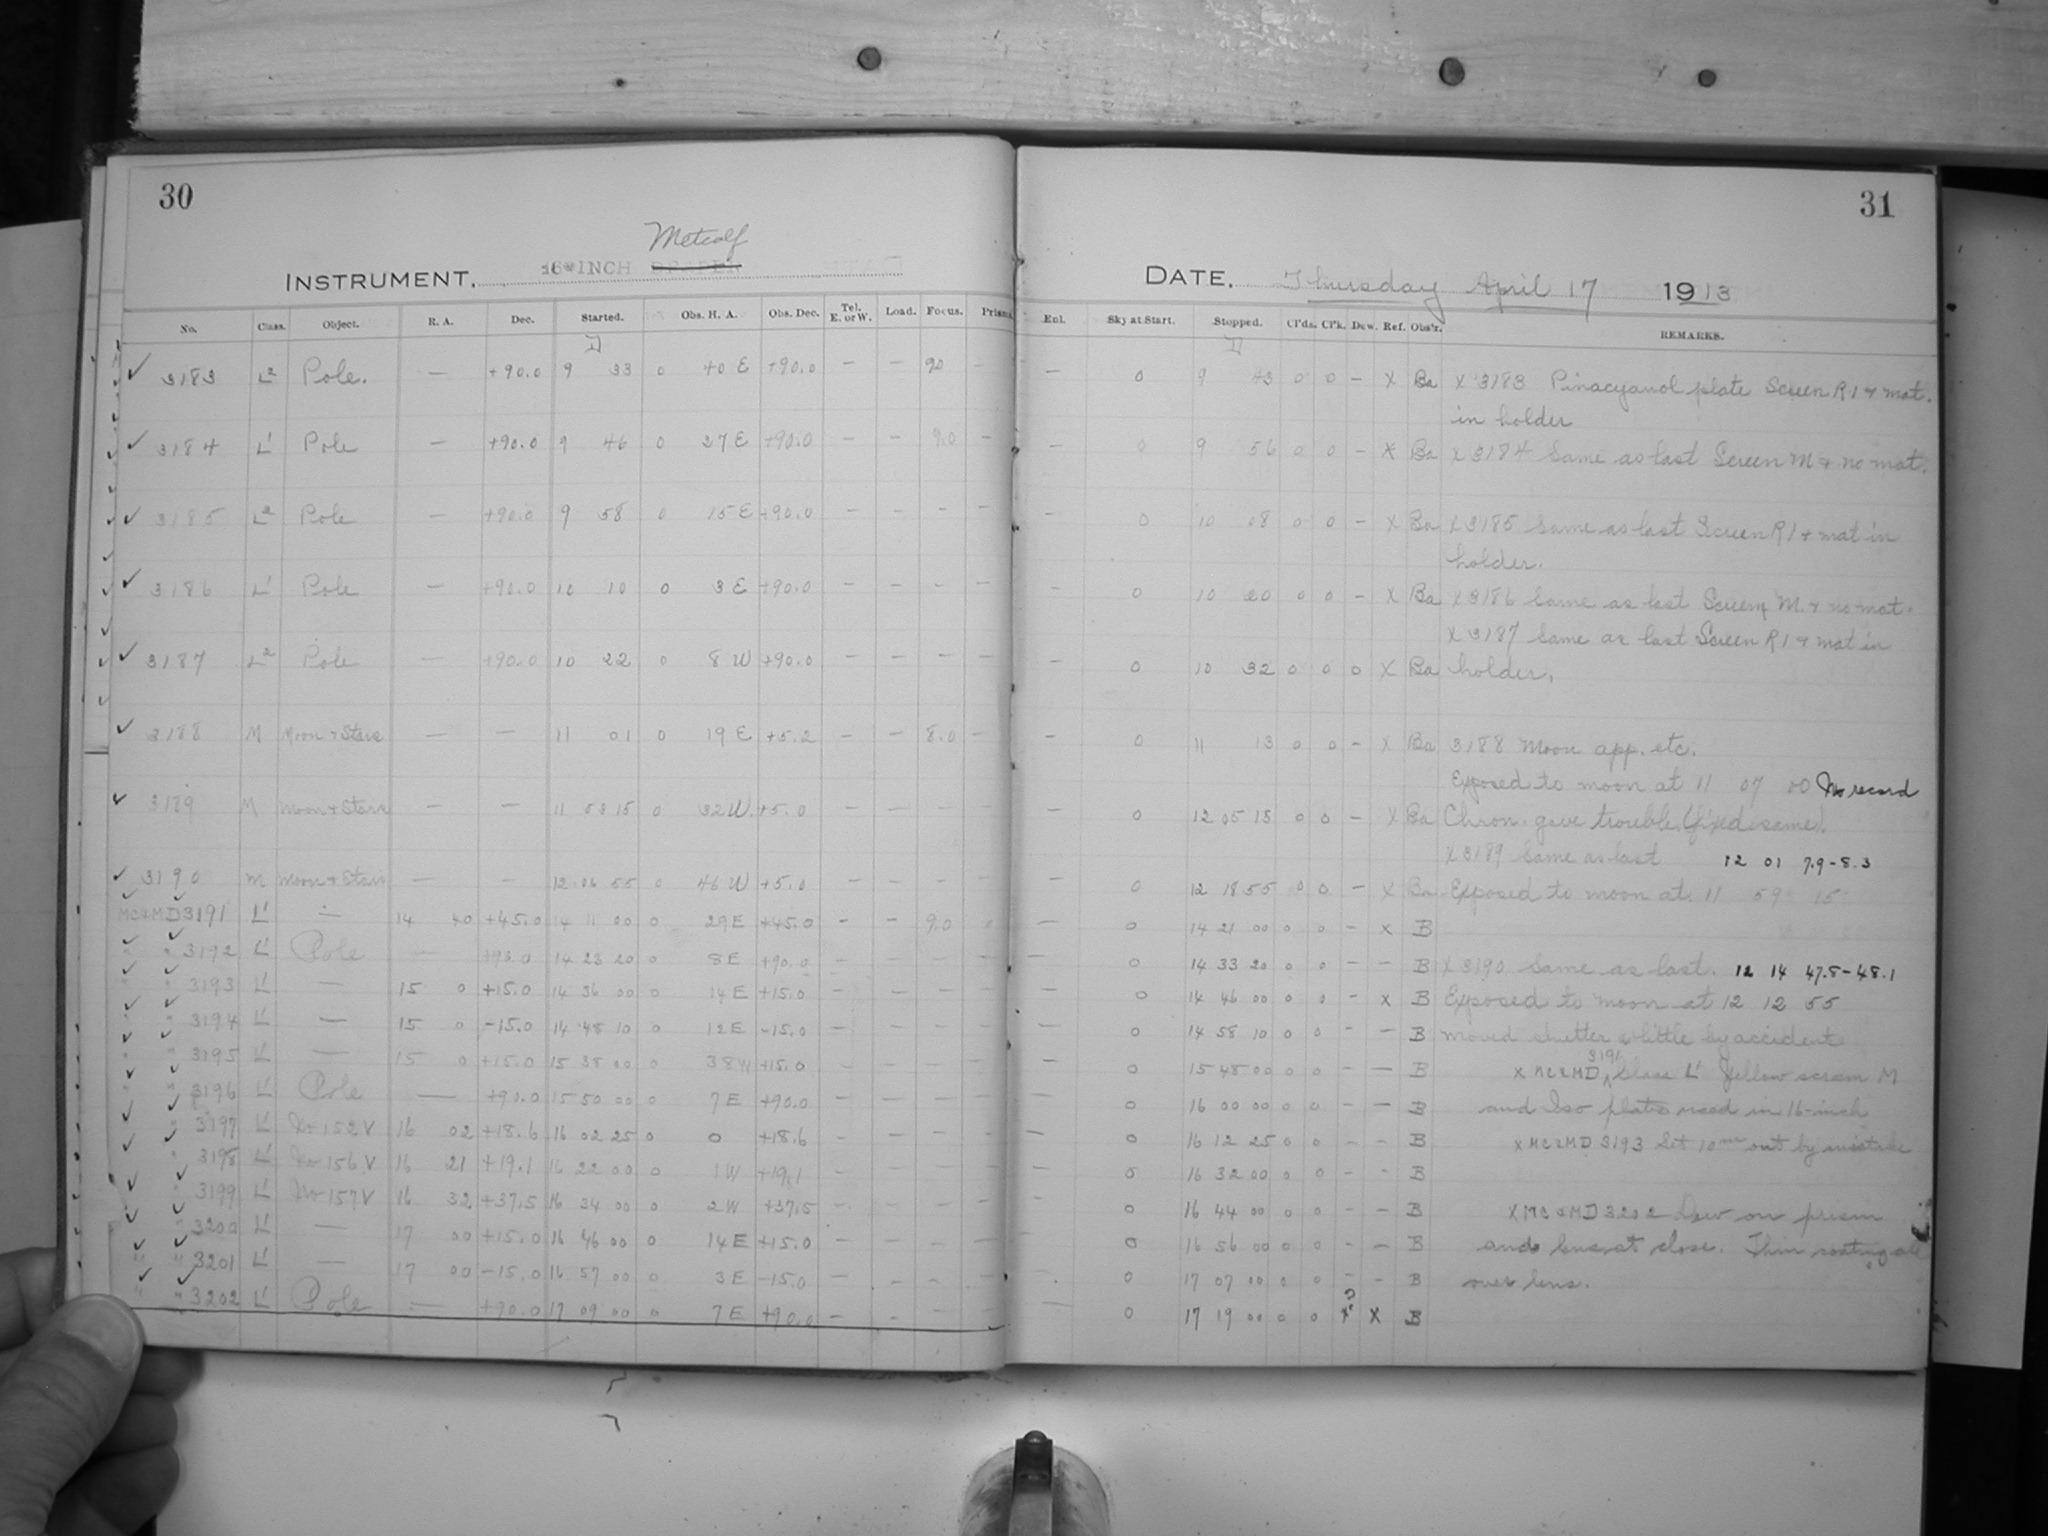 30
31
Metcalf
INSTRUMENT. 16 INCH DRAPER
DATE. Thursday April 17 1913
No. Class. Object. R. A. Dec. Started. Obs. H. A. Obs. Dec. Tel. E. or W. Load. Focus. Prism. Enl. Sky at Start. Stopped. Cl'ds. Cl'k. Dew. Ref. Obs'r. REMARKS.
✓ 3183 L2 Pole. — +90.0 9 33 0 40 E +90.0 — — 90 — 0 9 43 0 0 — X Ba X 3183 Pinacyanol plate Screen R1 + mat.
in holder
✓ 3184 L' Pole — +90.0 9 46 0 27 E +90.0 — — 9.0 — — 0 9 56 0 0 — X Ba X 3184 Same as last Screen M + no mat.
✓ 3185 L2 Pole — +90.0 9 58 0 15 E +90.0 — — — — — 0 10 08 0 0 — X Ba X 3185 Same as last Screen R1 + mat in
holder.
✓ 3186 L' Pole — +90.0 10 10 0 3 E +90.0 — — — — — 0 10 20 0 0 — X Ba X 3186 Same as last Screen M. + no mat.
X 3187 Same as last Screen R1 + mat in
✓ 3187 L2 Pole — +90.0 10 22 0 8 W +90.0 — — — — — 0 10 32 0 0 0 X Ba holder.
✓ 3188 M Moon + Stars — — 11 01 0 19 E +5.2 — — 8.0 — — 0 11 13 0 0 — X Ba 3188 Moon app. etc.
Exposed to moon at 11 07 00 No record
✓ 3189 M Moon + Stars — — 11 53 15 0 32 W +5.0 — — — — — 0 12 05 15 0 0 — X Ba Chron. gave trouble (fixed same).
X 3189 Same as last 12 01 7.9-8.3
✓ 3190 M Moon + Stars — — 12 06 55 0 46 W +5.0 — — — — — 0 12 18 55 0 0 — X Ba Exposed to moon at 11 59 15
MC&MD 3191 L' — 14 40 +45.0 14 11 00 0 29 E +45.0 — — 9.0 — 0 14 21 00 0 0 — X B
" " 3192 L' Pole — +90.0 14 23 20 0 8 E +90.0 — — — — — 0 14 33 20 0 0 — — B X 3190 Same as last. 12 14 47.8-48.1
" " 3193 L' — 15 0 +15.0 14 36 00 0 14 E +15.0 — — — — — 0 14 46 00 0 0 — X B Exposed to moon at 12 12 55
" " 3194 L' — 15 0 -15.0 14 48 10 0 12 E -15.0 — — — — — 0 14 58 10 0 0 — — B moved shutter a little by accident
" " 3195 L' — 15 0 +15.0 15 38 00 0 38 W +15.0 — — — — — 0 15 48 00 0 0 — — B X MC&MD 3191 Class L' Yellow screen M
" " 3196 L' Pole — +90.0 15 50 00 0 7 E +90.0 — — — — — 0 16 00 00 0 0 — — B and Iso plates used in 16-inch
" 3197 L' No 152 V 16 02 +18.6 16 02 25 0 0 +18.6 — — — — — 0 16 12 25 0 0 — — B X MC&MD 3193 Set 10m out by mistake
" 3198 L' No 156 V 16 21 +19.1 16 22 00 0 1 W +19.1 — — — — 0 16 32 00 0 0 — — B
" 3199 L' No 157 V 16 32 +37.5 16 34 00 0 2 W +37.5 — — — — — 0 16 44 00 0 0 — — B X MC&MD 3202 Dew on prism
" 3200 L' — 17 00 +15.0 16 46 00 0 14 E +15.0 — — — — — 0 16 56 00 0 0 — — B and lens at close. Thin coating all
" " 3201 L' — 17 00 -15.0 16 57 00 0 3 E -15.0 — — — — — 0 17 07 00 0 0 — — B over lens.
" " 3202 L' Pole — +90.0 17 09 00 0 7 E +90.0 — — — 0 17 19 00 0 0 X X B